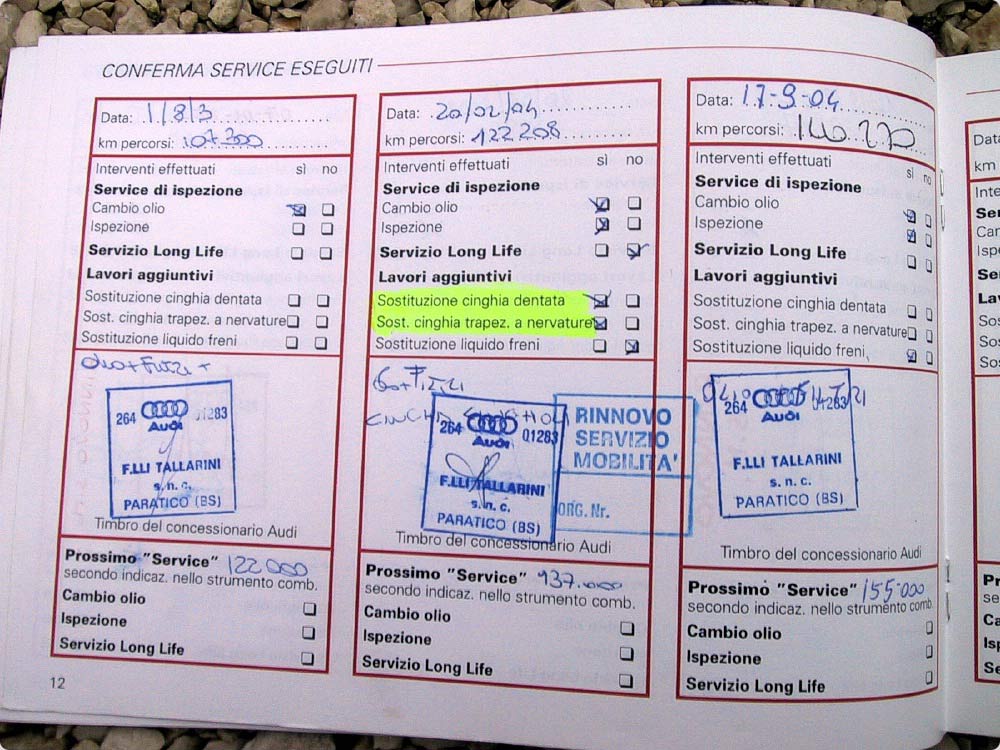 CONFERMA SERVICE ESEGUITI
Data: 1/8/3
km percorsi: 107.300
Interventi effettuati sì no
Service di ispezione
Cambio olio
Ispezione
Servizio Long Life
Lavori aggiuntivi
Sostituzione cinghia dentata
Sost. cinghia trapez. a nervature
Sostituzione liquido freni
264 01283
Audi
F.LLI TALLARINI
s.n.c.
PARATICO (BS)
Timbro del concessionario Audi
Prossimo "Service" 122000
secondo indicaz. nello strumento comb.
Cambio olio
Ispezione
Servizio Long Life
12
Data: 20/02/04
km percorsi: 122208
Interventi effettuati sì no
Service di ispezione
Cambio olio
Ispezione
Servizio Long Life
Lavori aggiuntivi
Sostituzione cinghia dentata
Sost. cinghia trapez. a nervature
Sostituzione liquido freni
264 01283
Audi
F.LLI TALLARINI
s.n.c.
PARATICO (BS)
RINNOVO
SERVIZIO
MOBILITA'
ORG. Nr.
Timbro del concessionario Audi
Prossimo "Service" 137.000
secondo indicaz. nello strumento comb.
Cambio olio
Ispezione
Servizio Long Life
Data: 17-9-04
km percorsi: 140.270
Interventi effettuati
sì no
Service di ispezione
Cambio olio
Ispezione
Servizio Long Life
Lavori aggiuntivi
Sostituzione cinghia dentata
Sost. cinghia trapez. a nervature
Sostituzione liquido freni
264 01283
Audi
F.LLI TALLARINI
s.n.c.
PARATICO (BS)
Timbro del concessionario Audi
Prossimo "Service" 155000
secondo indicaz. nello strumento comb.
Cambio olio
Ispezione
Servizio Long Life